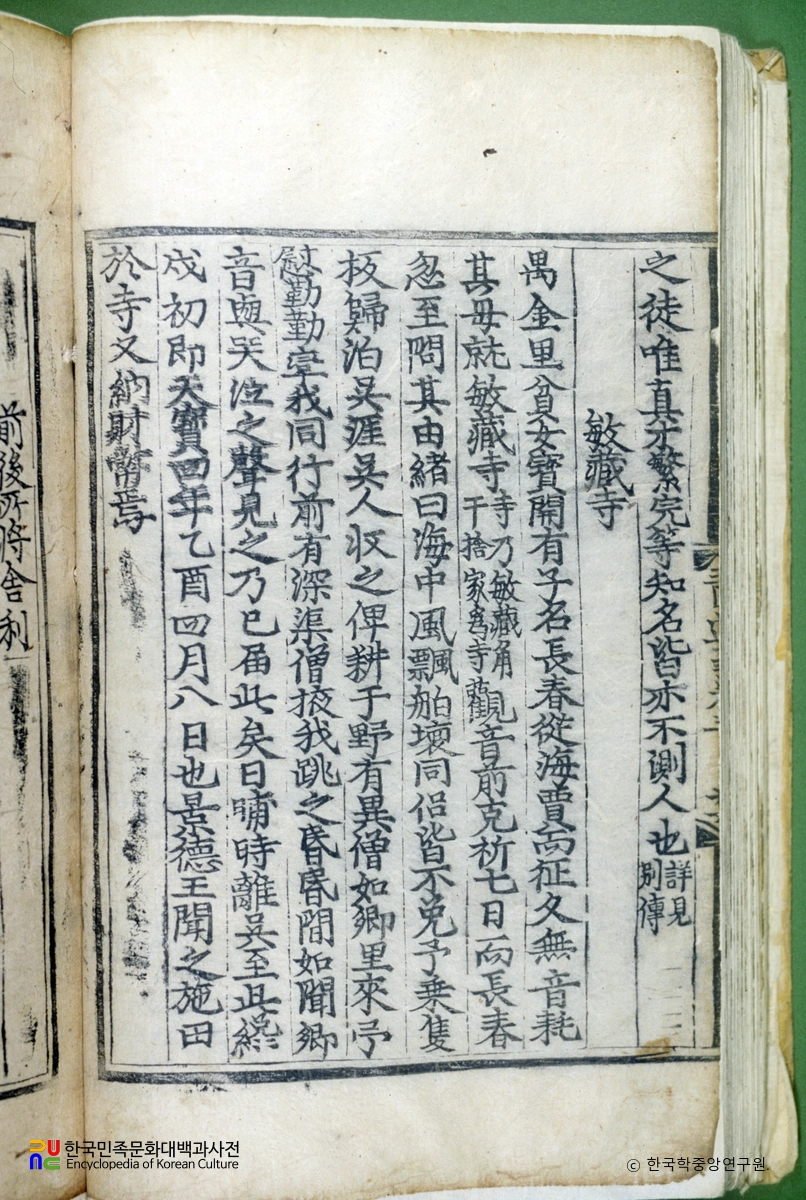 之徒唯真才繁完等知名皆亦不測人也詳見別傳
敏藏寺
禺金里貧女寶開有子名長春從海賈而征久無音耗
其母就敏藏寺寺乃敏藏角干捨家爲寺觀音前克祈七日而長春
忽至問其由緒曰海中風飄舶壞同侣皆不免予乗隻
板歸泊吳涯吳人収之俾耕于野有異僧如郷里來弔
慰勤勤率我同行前有深渠僧掖我跳之昏昏間如聞郷
音與哭泣之聲見之乃已届此矣日晡時離吳至此纔
戌初即天寶四年乙酉四月八日也景德王聞之施田
於寺又納財幣焉
前後所將舍利
한국민족문화대백과사전
Encyclopedia of Korean Culture
ⓒ 한국학중앙연구원